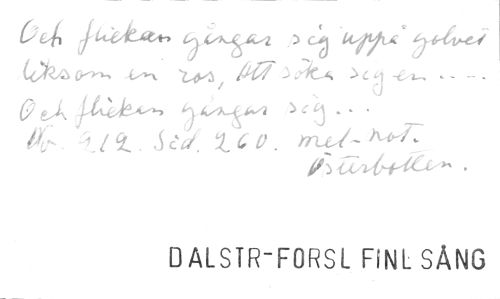 Och flickan gångar sig uppå golvet
liksom en ros, Att söka sig en .....
Och flickan gångar sig...
Nr. 212. Sid. 260. mel-not.
Österbotten.
DALSTR-FORSL FINL SÅNG